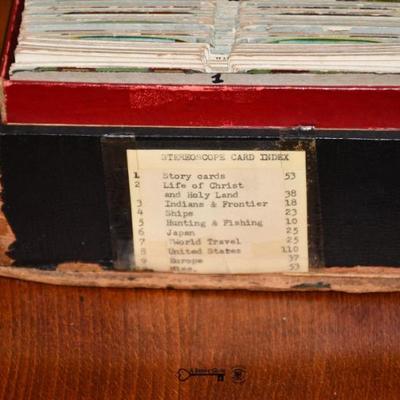 1
STEREOSCOPE CARD INDEX
1 Story cards 53
2 Life of Christ
and Holy Land 38
3 Indians & Frontier 18
4 Ships 23
5 Hunting & Fishing 10
6 Japan 25
7 World Travel 25
8 United States 110
9 Europe 37
Misc. 53